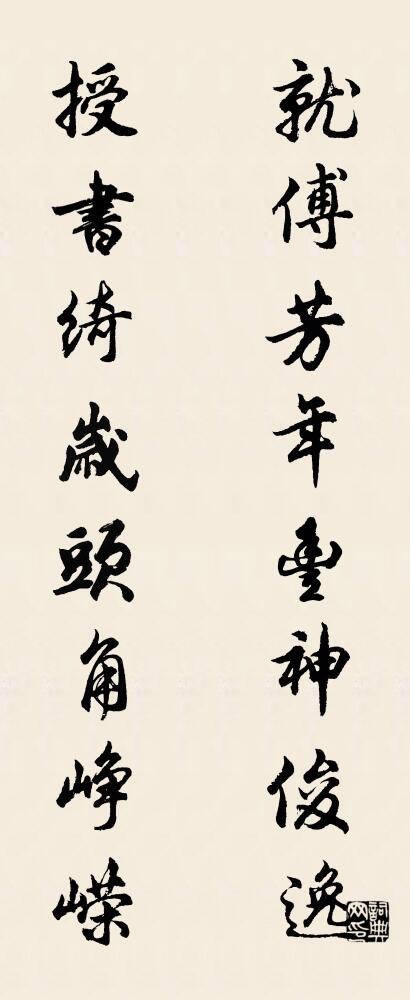 就傅芳年豐神俊逸
授書綺歲頭角崢嶸
詞典网印